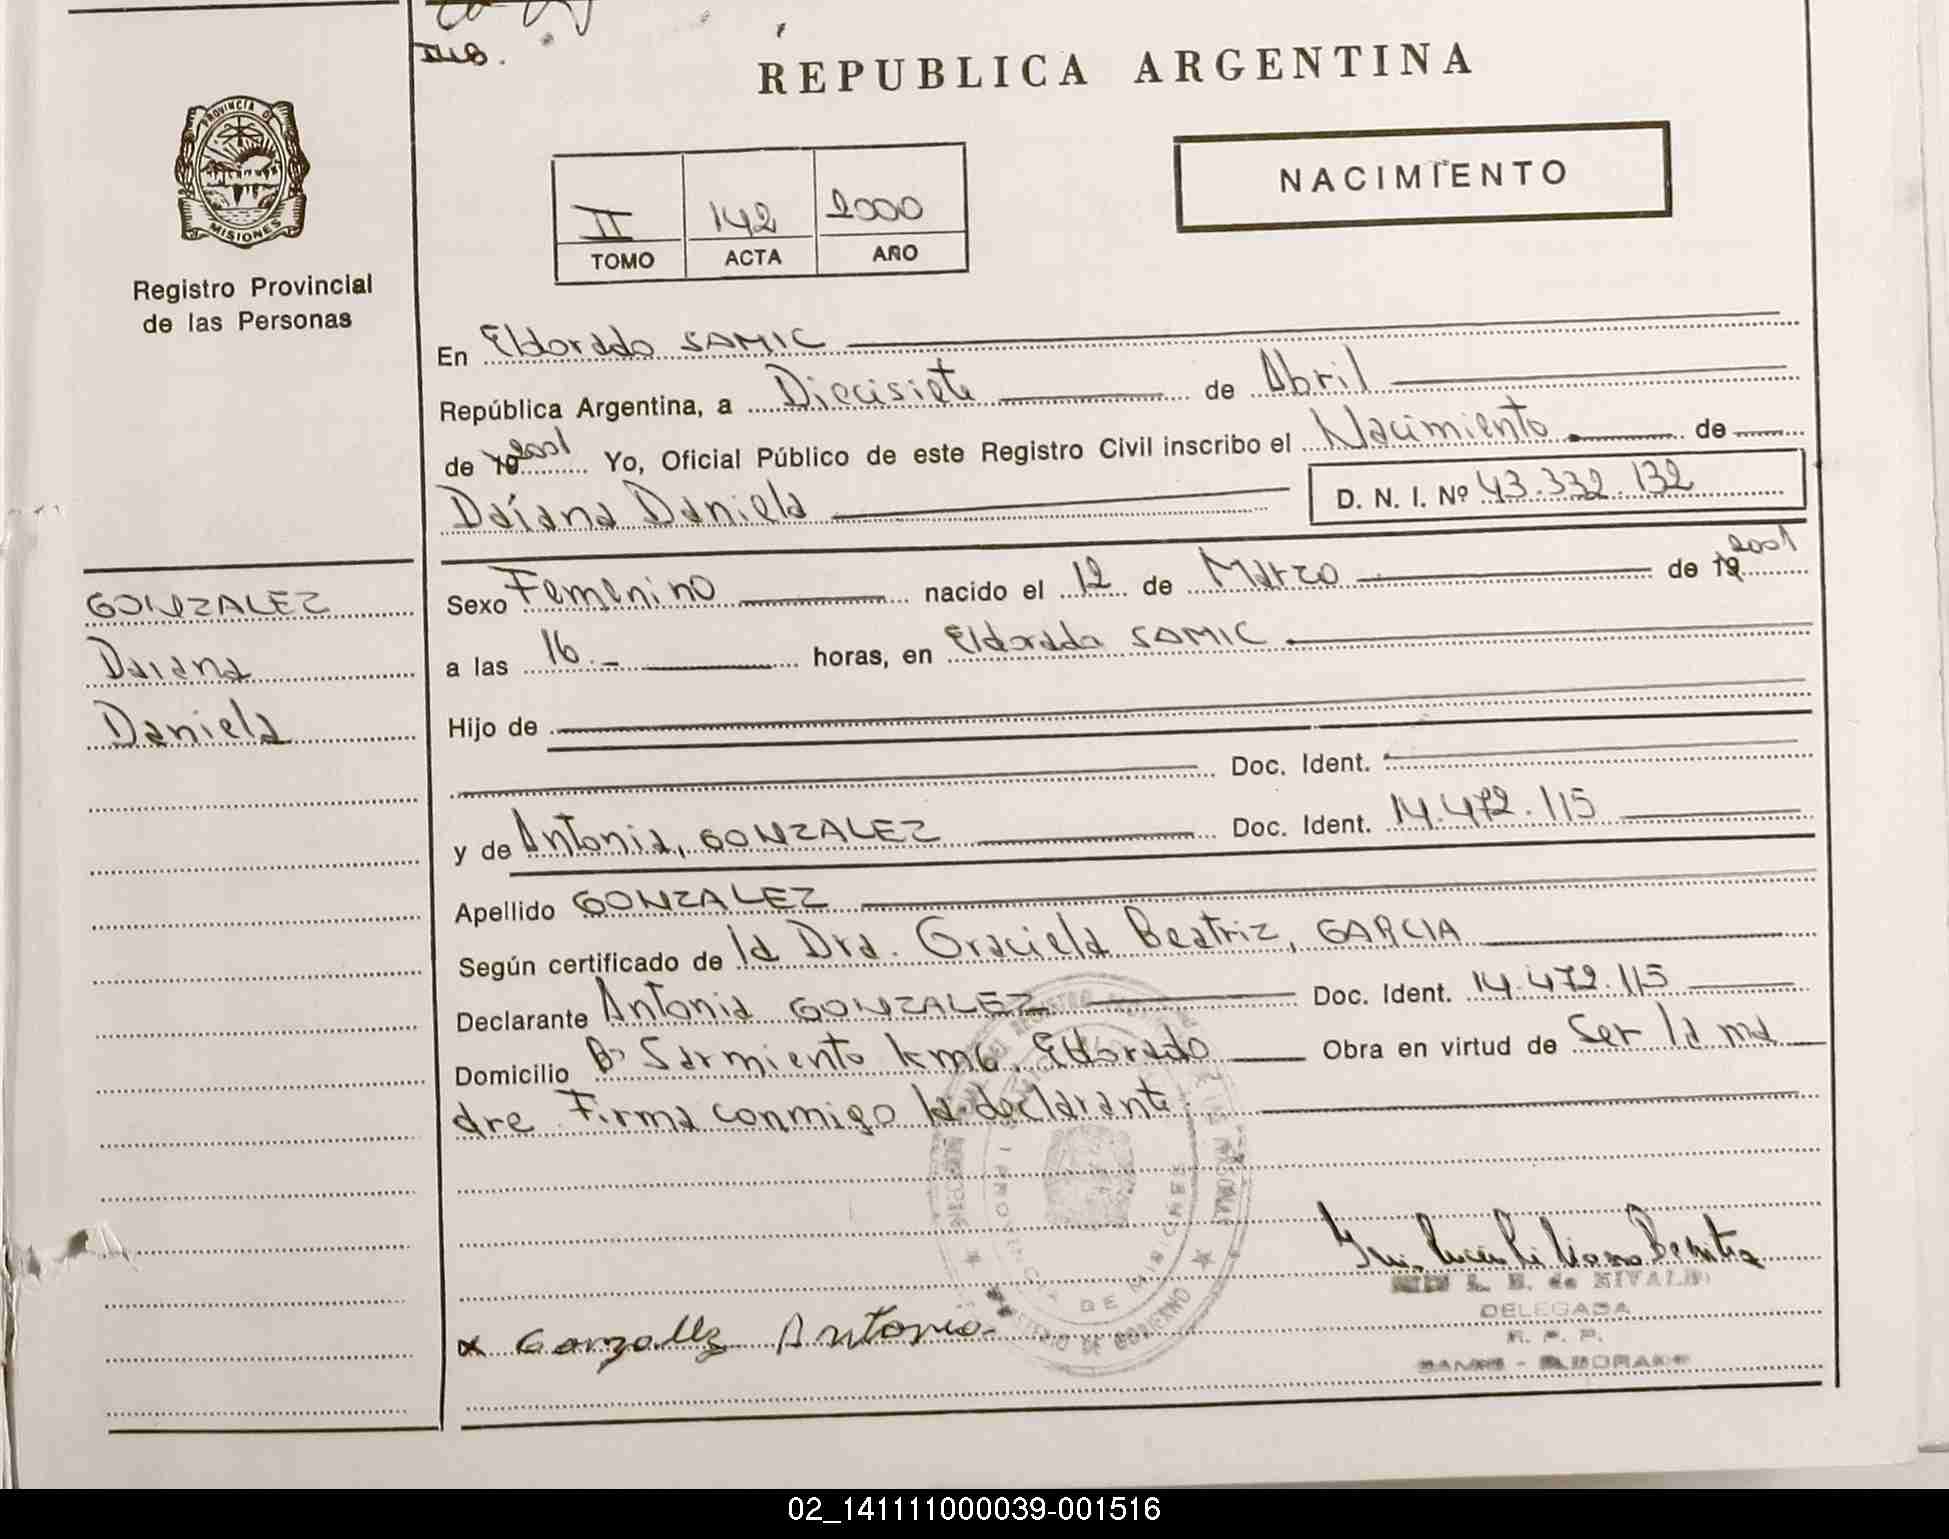 INB.
REPUBLICA ARGENTINA
NACIMIENTO
II 142 2000
TOMO ACTA AÑO
PROVINCIA DE MISIONES
Registro Provincial
de las Personas
En Eldorado SAMIC
República Argentina, a Diecisiete de Abril
de 19 2001 Yo, Oficial Público de este Registro Civil inscribo el Nacimiento de
Daíana Daniela D. N. I. Nº 43.332.132
GONZALEZ
Daiana
Daniela
Sexo Femenino nacido el 12 de Marzo de 19 2001
a las 16.- horas, en Eldorado SAMIC
Hijo de
Doc. Ident.
y de Antonia, GONZALEZ Doc. Ident. 14.472.115
Apellido GONZALEZ
Según certificado de la Dra. Graciela Beatriz, GARCIA
Declarante Antonia GONZALEZ Doc. Ident. 14.472.115
Domicilio Bº Sarmiento km6, Eldorado Obra en virtud de Ser la ma
dre. Firma conmigo la declarante.
PROVINCIA DE MISIONES
MINISTERIO DE GOBIERNO
L. B. de NIVALD
DELEGADA
R. P. P.
SAMIC - ELDORADO
x Gonzalez Antonia
02_141111000039-001516